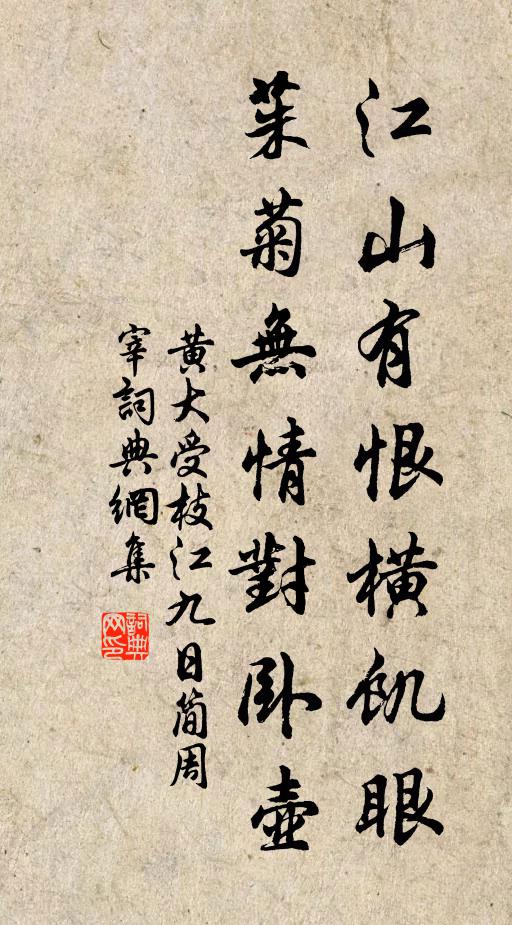 江山有恨橫飢眼
茱菊無情對卧壺
黃大受枝江九日简周
宰詞典網集
詞典网印